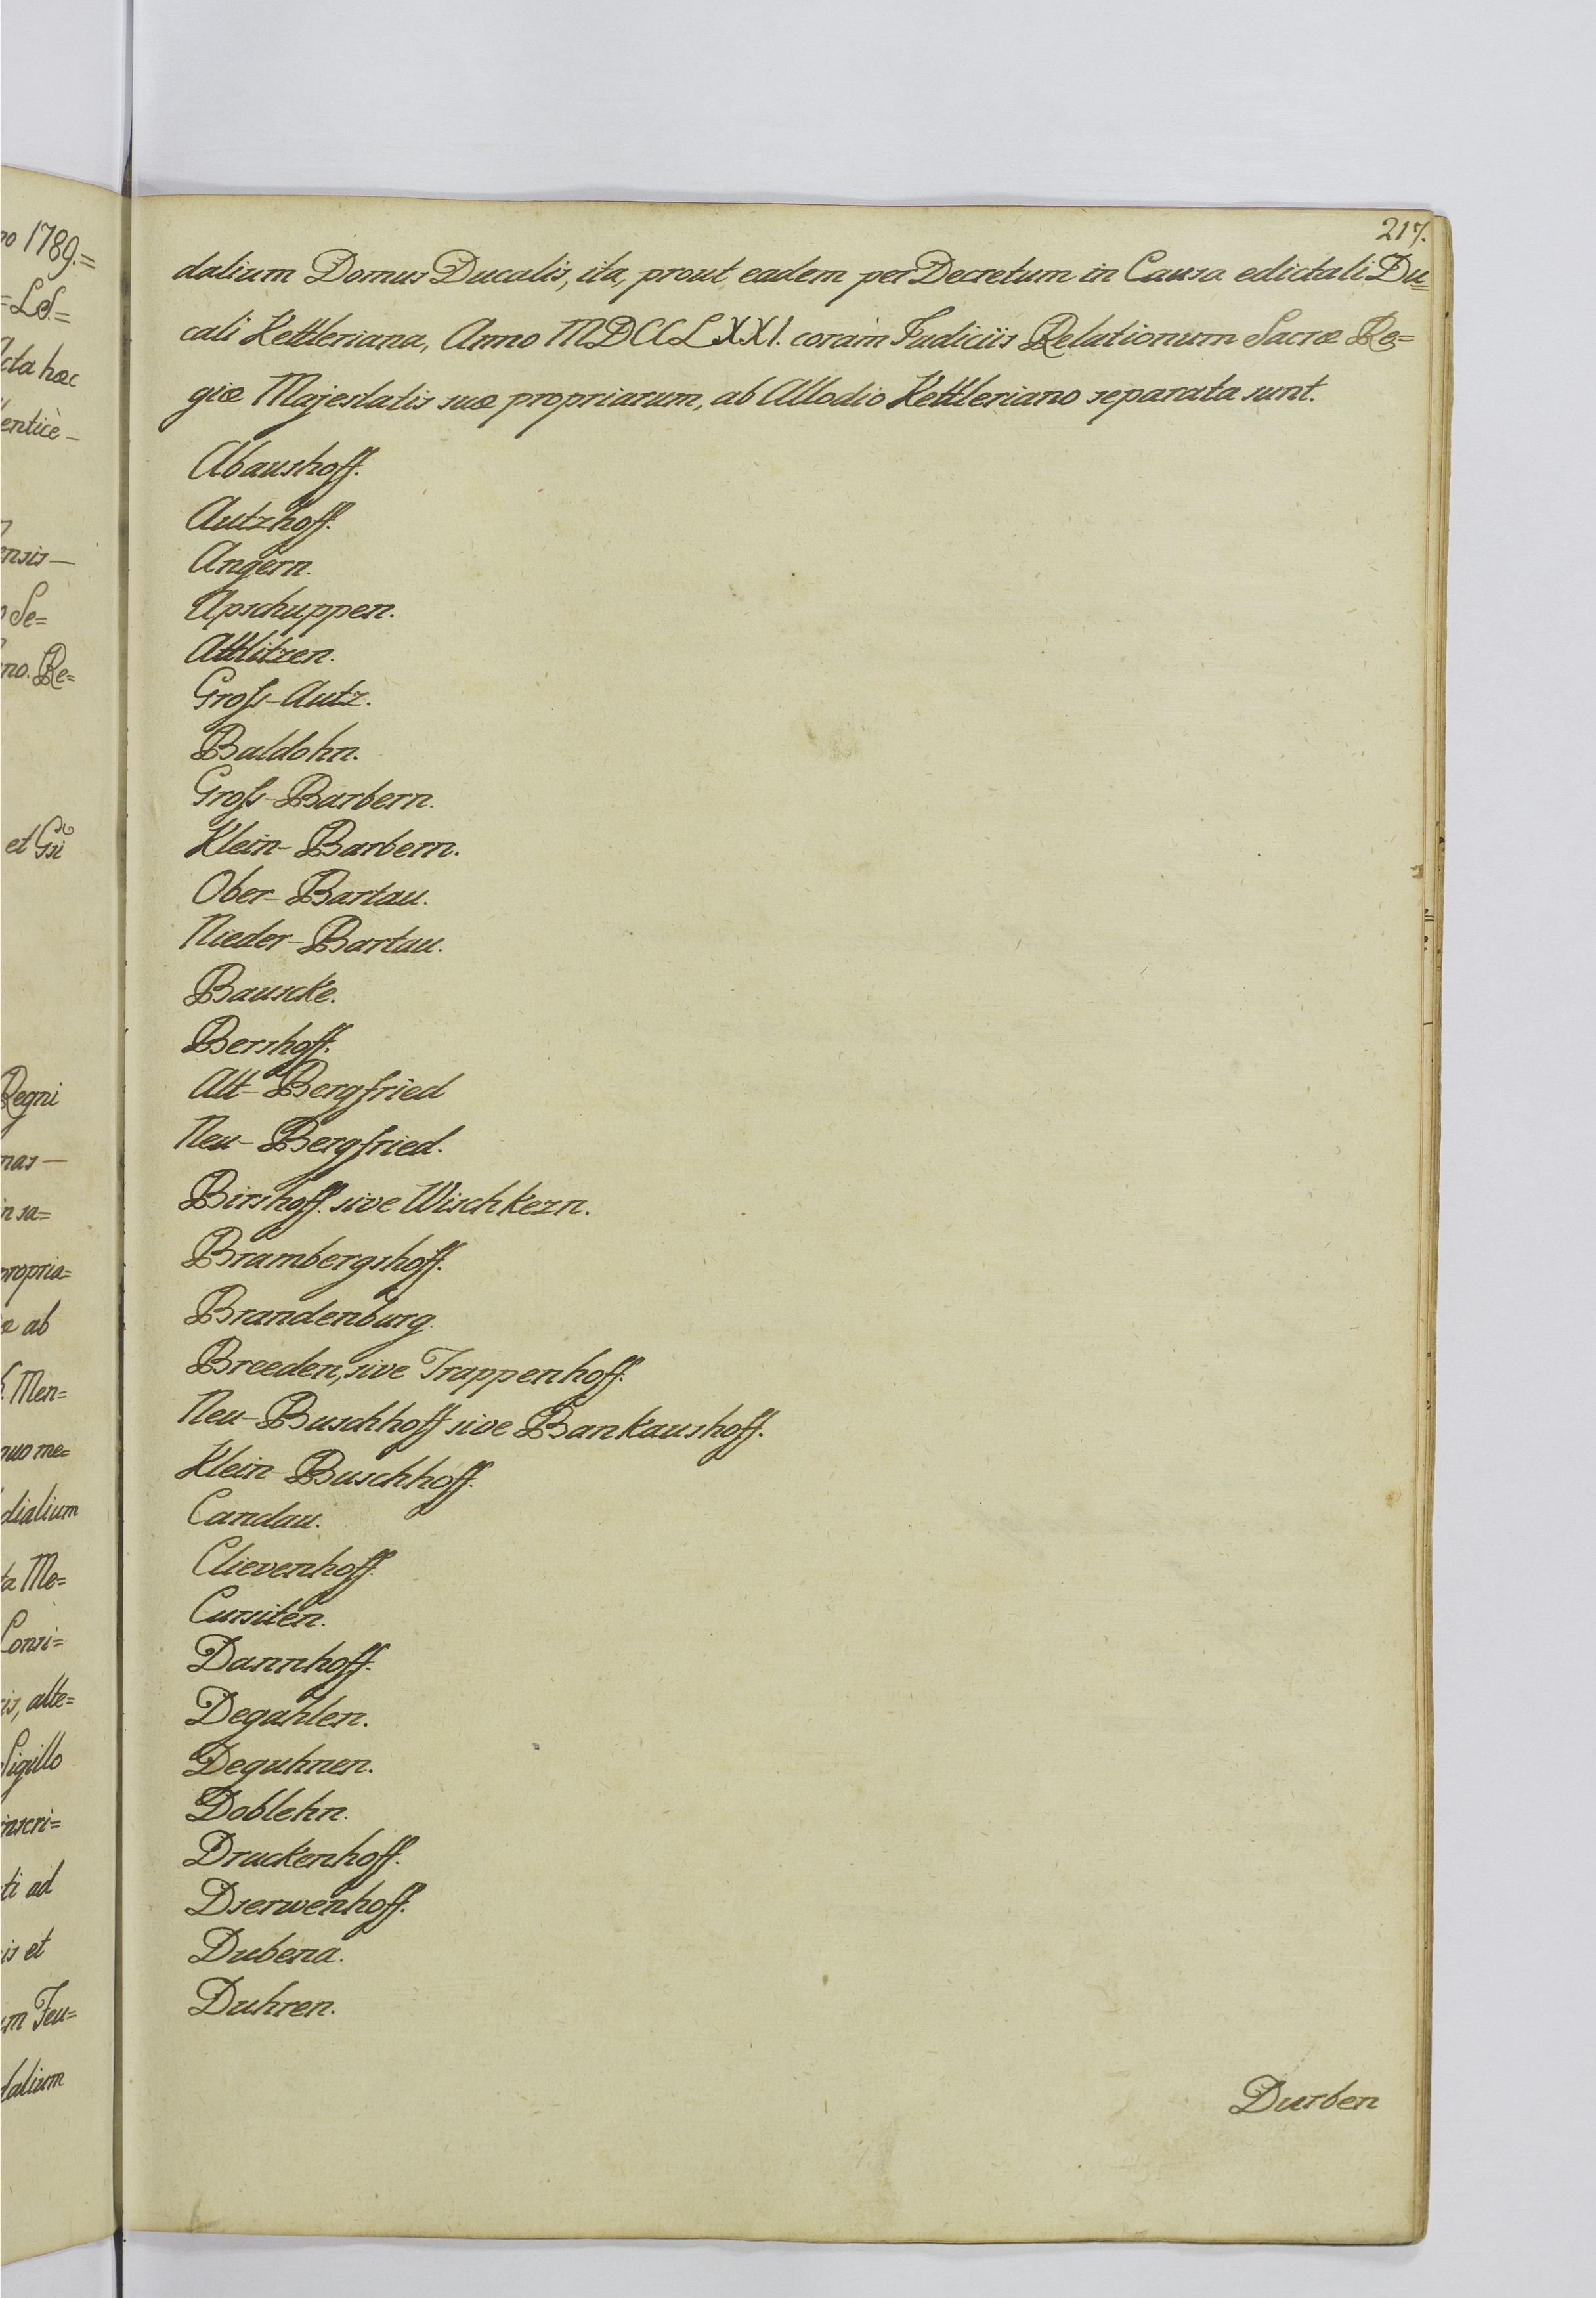 no 1789.=
=LS.=
cta hæc
enticè_
ensis—
Se=
no. Re=
et Gñ
Regni
nas—
n sa=
propria=
æ ab
Men=
quo me=
dialium
ta Me=
Consi=
is, alte=
Sigillo
inscri=
ti ad
is et
m Feu=
dalium
217.
dalium Domus Ducalis, ita, prout eadem per Decretum in Causa edictali Du=
cali Kettleriana, Anno MDCCLXXI. coram Judiciis Relationum Sacræ Re=
giæ Majestatis suæ propriarum, ab Allodio Kettleriano separata sunt.
Abaushoff.
Autzhoff.
Angern.
Apschuppen.
Attlitzen.
Groß-Autz.
Baldohn.
Groß-Barbern.
Klein-Barbern.
Ober-Bartau.
Nieder-Bartau.
Bauscke.
Bershoff.
Alt-Bergfried
Neu-Bergfried.
Birshoff. sive Wischkezn.
Brambergshoff.
Brandenburg.
Breeden, sive Trappenhoff.
Neu-Buschhoff sive Bankaushoff.
Klein-Buschhoff.
Candau.
Clievenhoff.
Cursiten.
Dannhoff.
Degahlen.
Deguhnen.
Doblehn.
Druckenhoff.
Dserwenhoff.
Dubena.
Duhren.
Durben